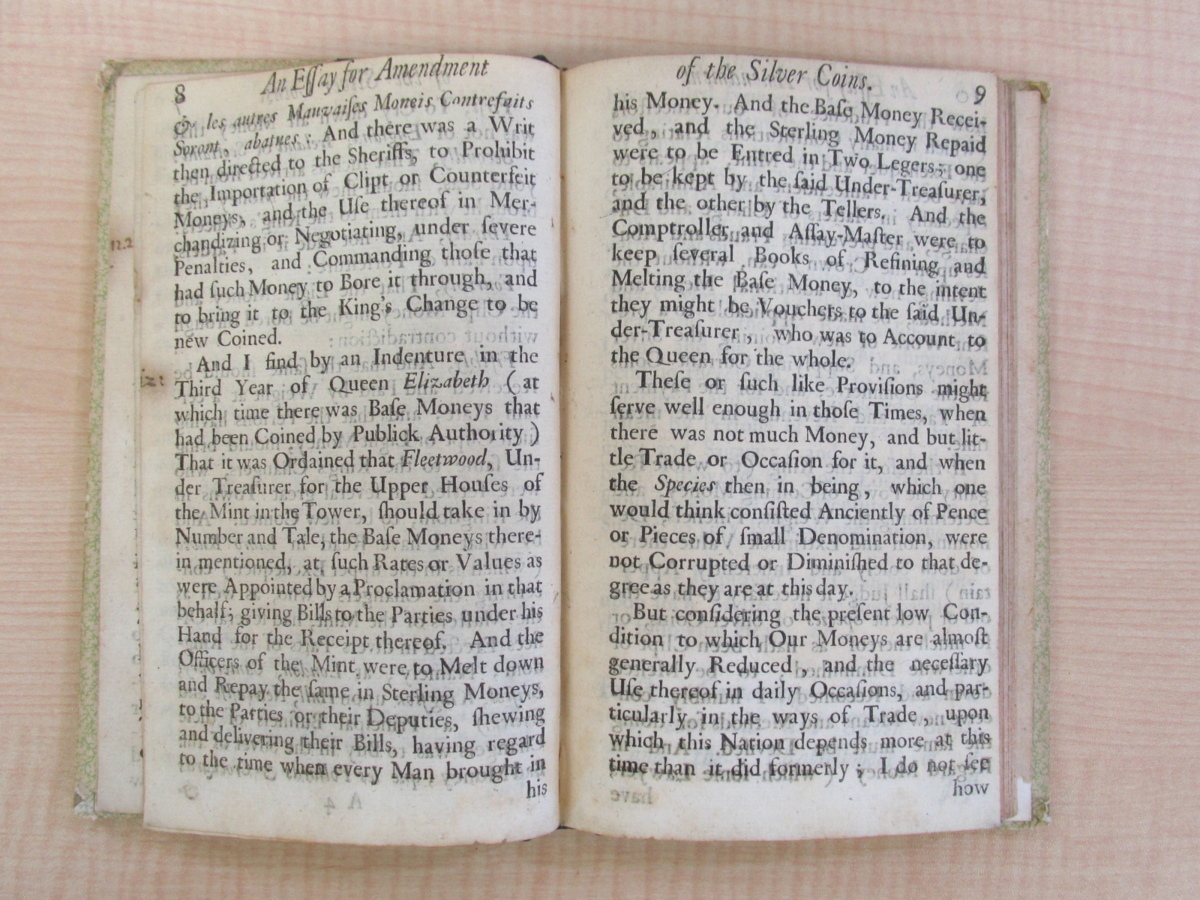 8
An Eſſay for Amendment
& les autres Mauvaiſes Moneis Contrefaits
Soront, abatues; And there was a Writ
then directed to the Sheriffs, to Prohibit
the Importation of Clipt or Counterfeit
Moneys, and the Uſe thereof in Mer-
chandizing or Negotiating, under ſevere
Penalties, and Commanding thoſe that
had ſuch Money to Bore it through, and
to bring it to the King's Change to be
new Coined.
And I find by an Indenture in the
Third Year of Queen Elizabeth (at
which time there was Baſe Moneys that
had been Coined by Publick Authority)
That it was Ordained that Fleetwood, Un-
der Treaſurer for the Upper Houſes of
the Mint in the Tower, ſhould take in by
Number and Tale, the Baſe Moneys there-
in mentioned, at ſuch Rates or Values as
were Appointed by a Proclamation in that
behalf; giving Bills to the Parties under his
Hand for the Receipt thereof. And the
Officers of the Mint were to Melt down
and Repay the ſame in Sterling Moneys,
to the Parties or their Deputies, ſhewing
and delivering their Bills, having regard
to the time when every Man brought in
his
of the Silver Coins.
9
his Money. And the Baſe Money Recei-
ved, and the Sterling Money Repaid
were to be Entred in Two Legers; one
to be kept by the ſaid Under-Treaſurer,
and the other by the Tellers. And the
Comptroller and Aſſay-Maſter were to
keep ſeveral Books of Refining and
Melting the Baſe Money, to the intent
they might be Vouchers to the ſaid Un-
der-Treaſurer, who was to Account to
the Queen for the whole.
Theſe or ſuch like Proviſions might
ſerve well enough in thoſe Times, when
there was not much Money, and but lit-
tle Trade or Occaſion for it, and when
the Species then in being, which one
would think conſiſted Anciently of Pence
or Pieces of ſmall Denomination, were
not Corrupted or Diminiſhed to that de-
gree as they are at this day.
But conſidering the preſent low Con-
dition to which Our Moneys are almoſt
generally Reduced, and the neceſſary
Uſe thereof in daily Occaſions, and par-
ticularly in the ways of Trade, upon
which this Nation depends more at this
time than it did formerly; I do not ſee
how